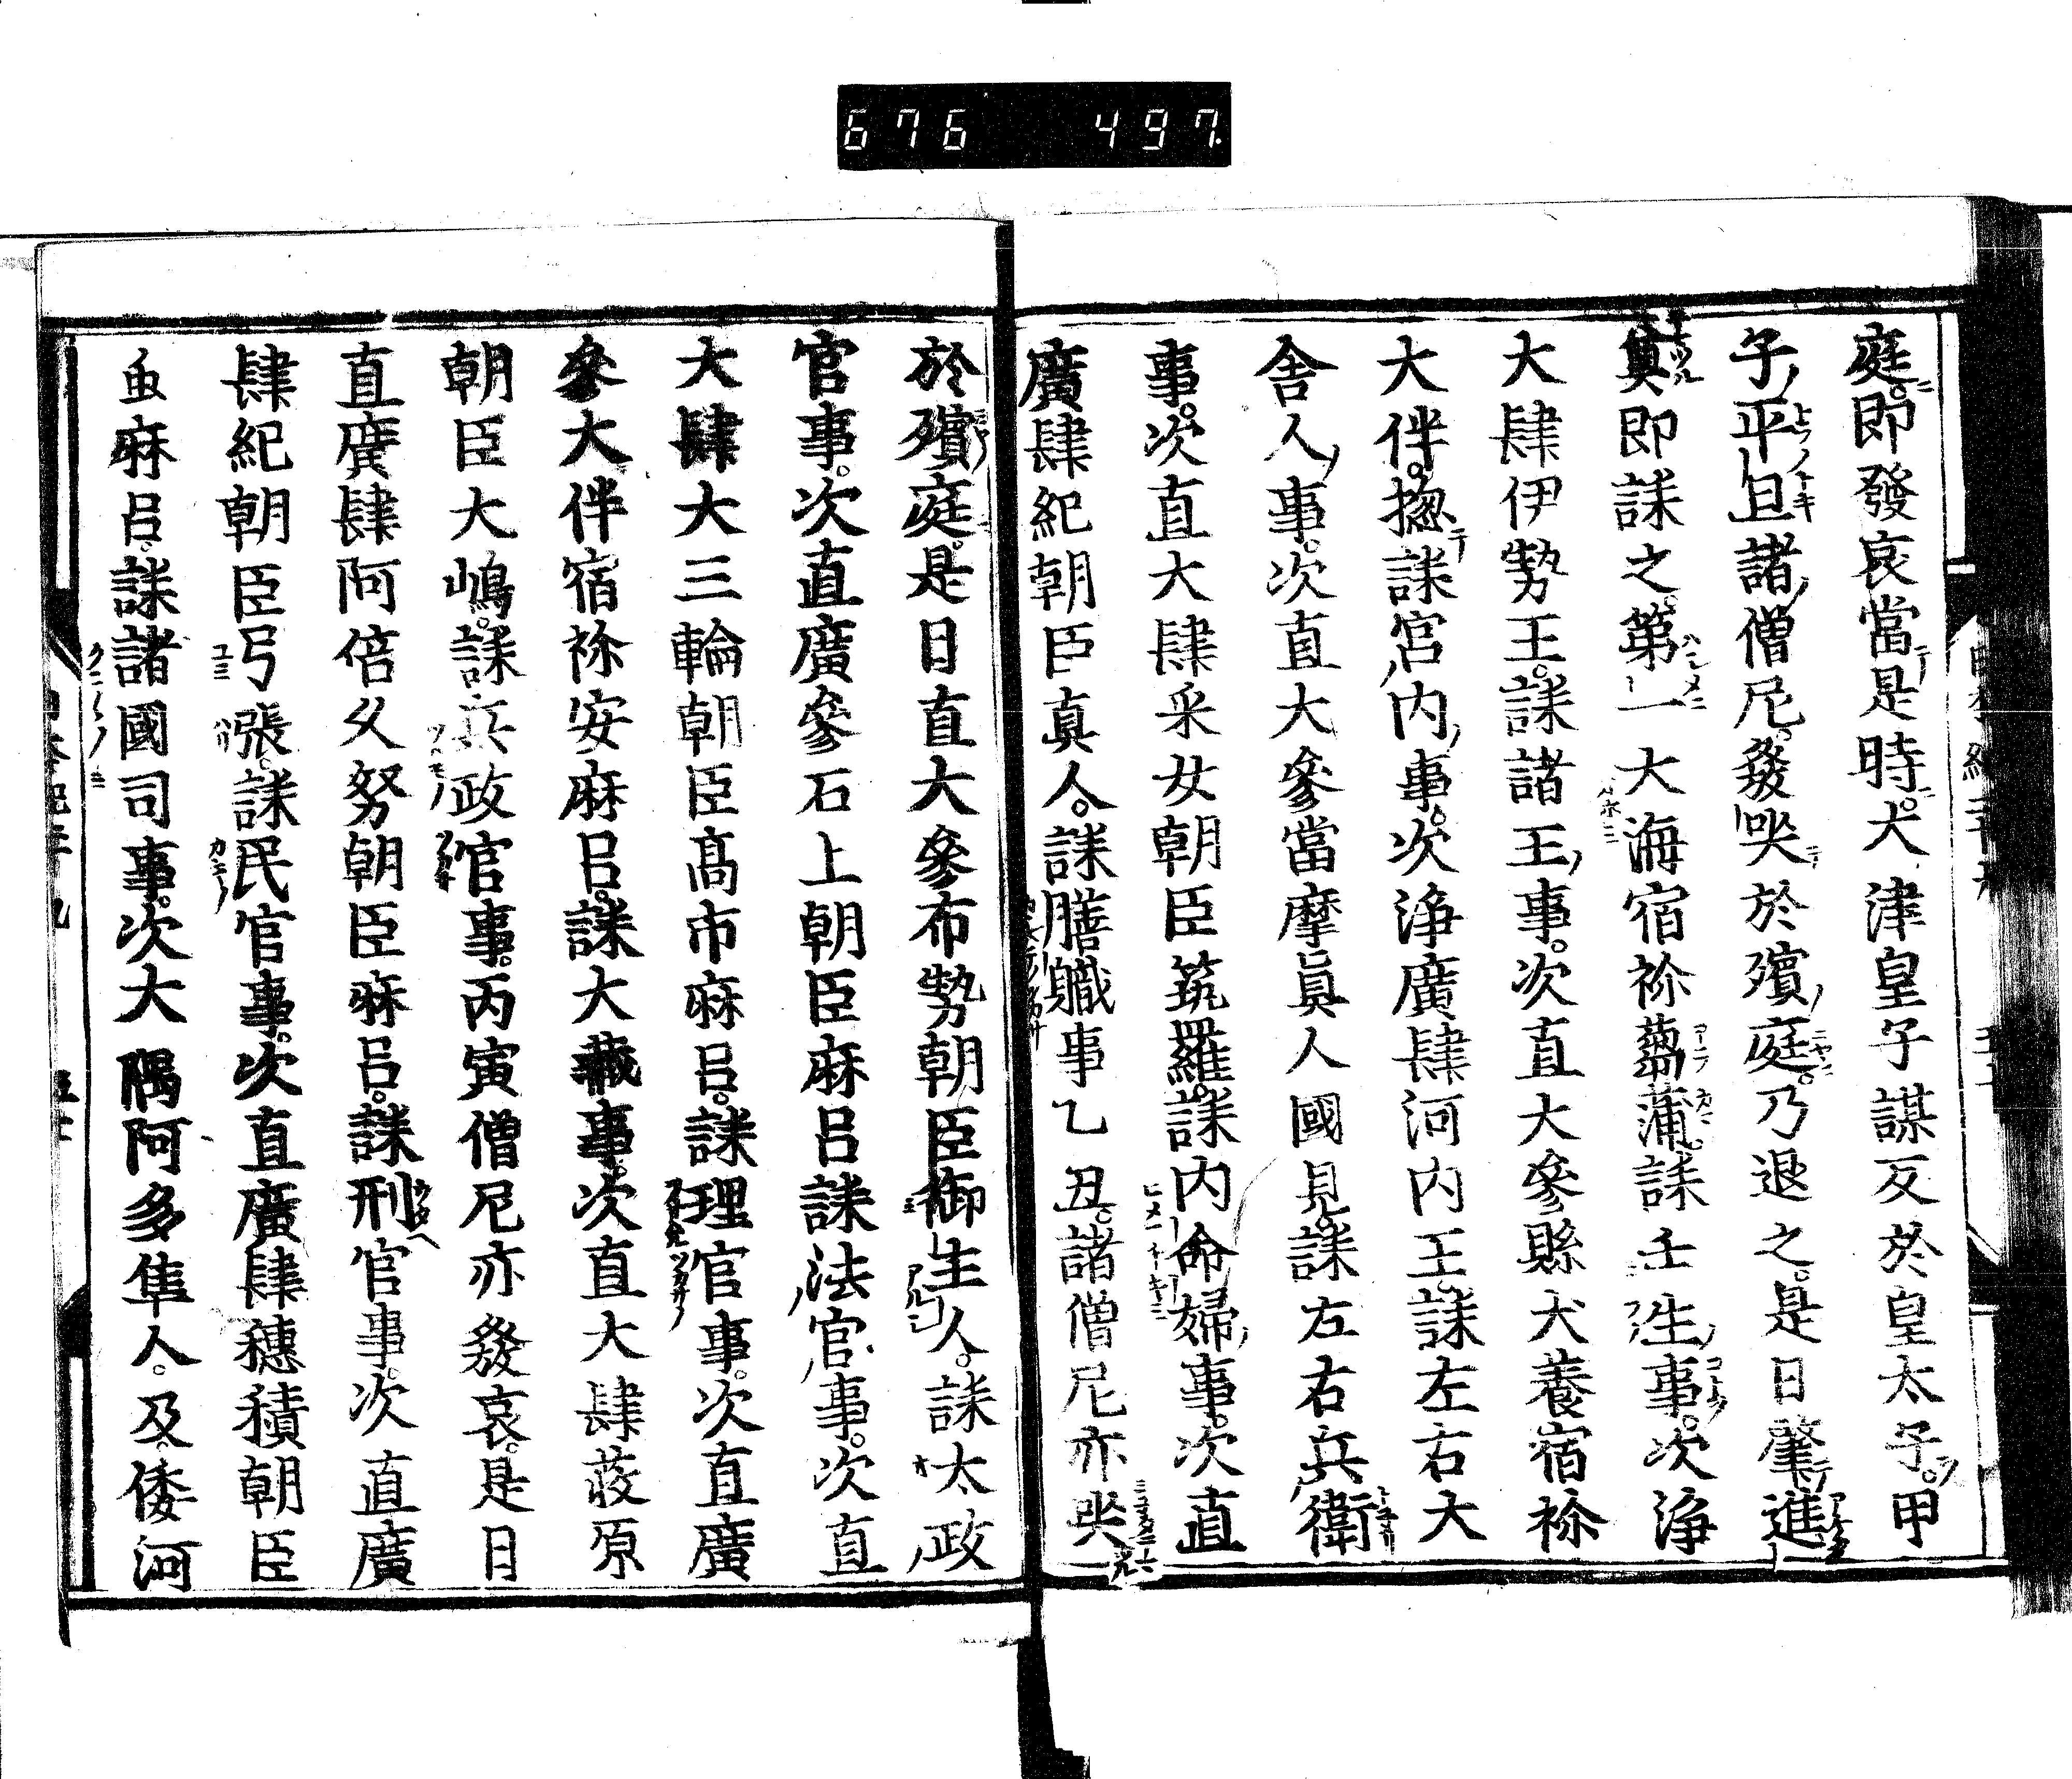 676 497
庭。即發哀當是時。大津皇子謀反於皇太子。甲
子平旦諸僧尼。發哭於殯庭。乃退之。是日肇進
奠即誄之。第一大海宿祢蒭蒲誄壬生事。次浄
大肆伊勢王。誄諸王事。次直大參縣犬養宿祢
大伴。揔誄宮内事。次浄廣肆河内王。誄左右大
舎人事。次直大參當摩真人國見。誄左右兵衛
事。次直大肆采女朝臣筑羅。誄内命婦事。次直
廣肆紀朝臣真人。誄膳職事乙丑。諸僧尼亦哭
於殯庭。是日直大參布勢朝臣御主人。誄太政
官事。次直廣參石上朝臣麻呂誄法官事。次直
大肆大三輪朝臣髙市麻呂。誄理官事。次直廣
參大伴宿祢安麻呂。誄大藏事。次直大肆藤原
朝臣大嶋。誄兵政官事。丙寅僧尼亦發哀。是日
直廣肆阿倍久努朝臣麻呂。誄刑官事。次直廣
肆紀朝臣弓張。誄民官事。次直廣肆穗積朝臣
虫麻呂。誄諸國司事。次大隅阿多隼人。及倭河